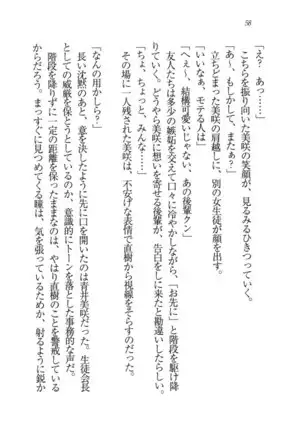 58
「え？　あっ……」
こちらを振り向いた美咲の笑顔が、見るみるひきつっていく。
「あ～、もしかして、またぁ？」
立ちどまった美咲の肩越しに、別の女生徒が顔を出す。
「いいなぁ、モテる人は」
「へえ～、結構可愛いじゃない、あの後輩クン」
友人たちは多少の嫉妬を交えて口々に冷やかしながら、「お先に」と階段を駆け降
りていく。どうやら美咲に想いを寄せる後輩が、告白をしに来たと勘違いしたらしい。
「ちょ、ちょっと、みんな……」
その場に一人残された美咲は、不安げな表情で直樹から視線をそらすのだった。
「なんの用かしら？」
長い沈黙のあと、意を決したように先に口を開いたのは青井美咲だった。生徒会長
としての威厳を保とうとしているのか、意識的にトーンを落とした事務的な声だ。
階段を降りずに一定の距離を保ったままなのは、やはり直樹のことを警戒している
からだろう。まっすぐに見つめてくる瞳は、気を張っているためか、射るように鋭か